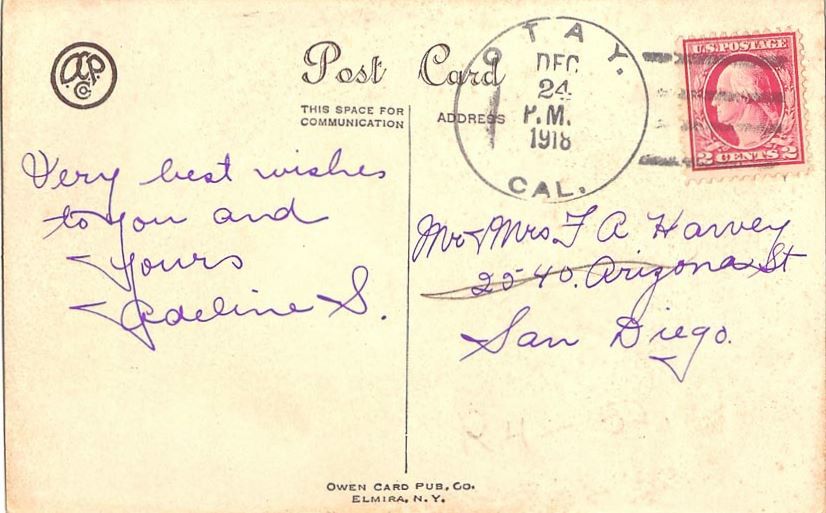 a.p.
Co
Post Card
THIS SPACE FOR
COMMUNICATION
ADDRESS
OTAY.
DEC
24
P.M.
1918
CAL.
U.S. POSTAGE
2 CENTS 2
Very best wishes
to you and
yours
Adeline S.
Mr & Mrs. F A Harvey
2540. Arizona St
San Diego.
OWEN CARD PUB. CO.
ELMIRA, N.Y.